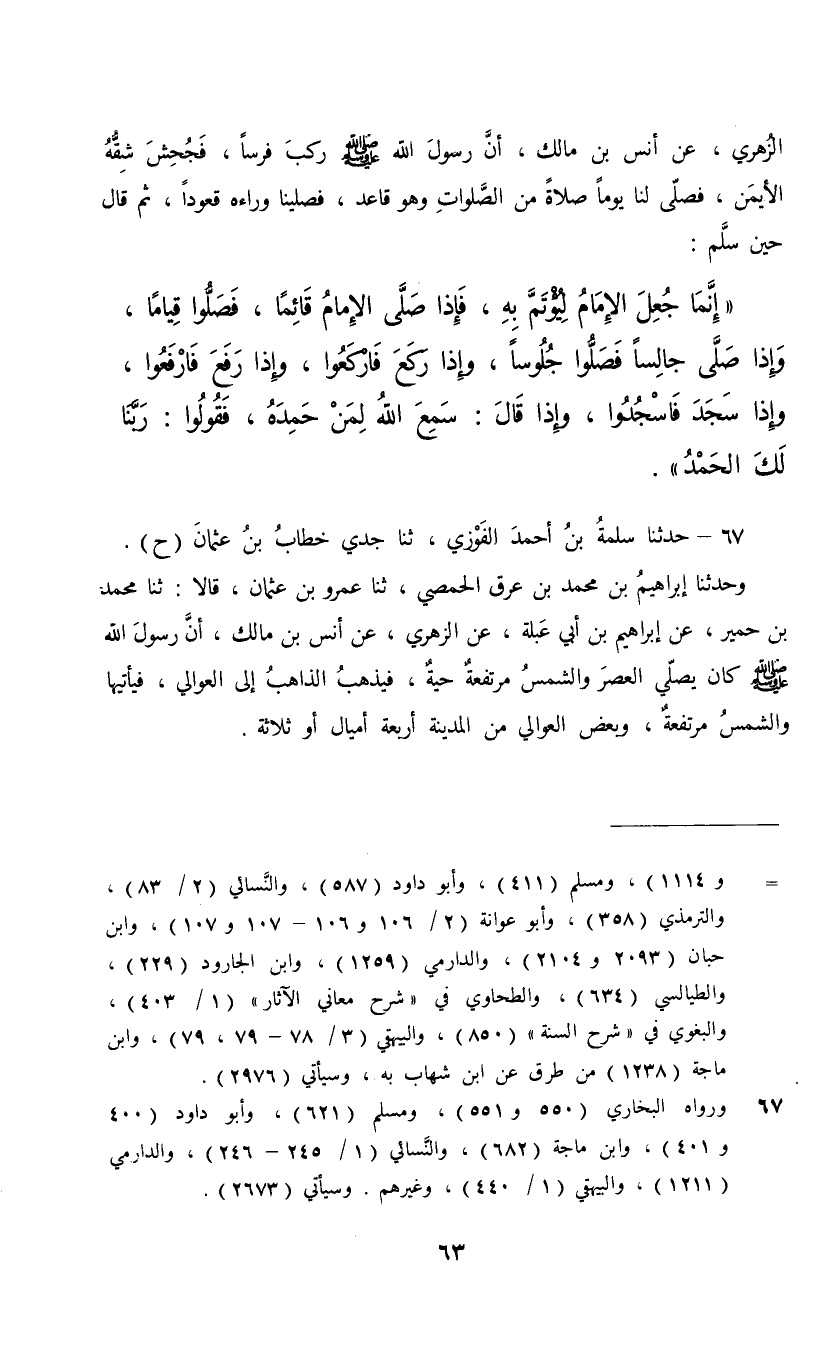 الزُهري ، عن أنس بن مالك ، أنَّ رسولَ الله ﷺ ركبَ فرساً ، فَجُحِشَ شِقُّهُ
الأيمَن ، فصلّى لنا يوماً صلاةً من الصَّلواتِ وهو قاعد ، فصلينا وراءه قعوداً ، ثم قال
حين سلَّم :
« إِنَّمَا جُعِلَ الإِمَامُ لِيُؤْتَمَّ بِهِ ، فَإِذا صَلَّى الإِمامُ قَائِمًا ، فَصَلُّوا قِيامًا ،
وَإِذا صَلَّى جالِساً فَصَلُّوا جُلُوساً ، وإِذا رَكَعَ فَارْكَعُوا ، وإِذا رَفَعَ فَارْفَعُوا ،
وإِذا سَجَدَ فَاسْجُدُوا ، وإِذا قَالَ : سَمِعَ اللهُ لِمَنْ حَمِدَهُ ، فَقُولُوا : رَبَّنَا
لَكَ الحَمْدُ » .
٦٧ – حدثنا سلمةُ بنُ أحمدَ الفَوْزي ، ثنا جدي خطابُ بنُ عثمانَ (ح) .
وحدثنا إبراهيمُ بن محمد بن عرق الحمصي ، ثنا عمرو بن عثمان ، قالا : ثنا محمد
بن حمير ، عن إبراهيم بن أبي عَبلة ، عن الزهري ، عن أنس بن مالك ، أنَّ رسولَ الله
ﷺ كان يصلّي العصرَ والشمسُ مرتفعةٌ حيةٌ ، فيذهبُ الذاهبُ إلى العوالي ، فيأتيها
والشمسُ مرتفعةٌ ، وبعض العوالي من المدينة أربعة أميال أو ثلاثة .
= و ١١١٤) ، ومسلم (٤١١) ، وأبو داود (٥٨٧) ، والنَّسائي (٢ / ٨٣) ،
والترمذي (٣٥٨) ، وأبو عوانة (٢ / ١٠٦ و ١٠٦ – ١٠٧ و ١٠٧) ، وابن
حبان (٢٠٩٣ و ٢١٠٤) ، والدارمي (١٢٥٩) ، وابن الجارود (٢٢٩) ،
والطيالسي (٦٣٤) ، والطحاوي في «شرح معاني الآثار» (١ / ٤٠٣) ،
والبغوي في «شرح السنة» (٨٥٠) ، والبيهقي (٣ / ٧٨ – ٧٩ ، ٧٩) ، وابن
ماجة (١٢٣٨) من طرق عن ابن شهاب به ، وسيأتي (٢٩٧٦) .
٦٧ ورواه البخاري (٥٥٠ و ٥٥١) ، ومسلم (٦٢١) ، وأبو داود (٤٠٠
و ٤٠١) ، وابن ماجة (٦٨٢) ، والنَّسائي (١ / ٢٤٥ – ٢٤٦) ، والدارمي
(١٢١١) ، والبيهقي (١ / ٤٤٠) ، وغيرهم . وسيأتي (٢٦٧٣) .
٦٣